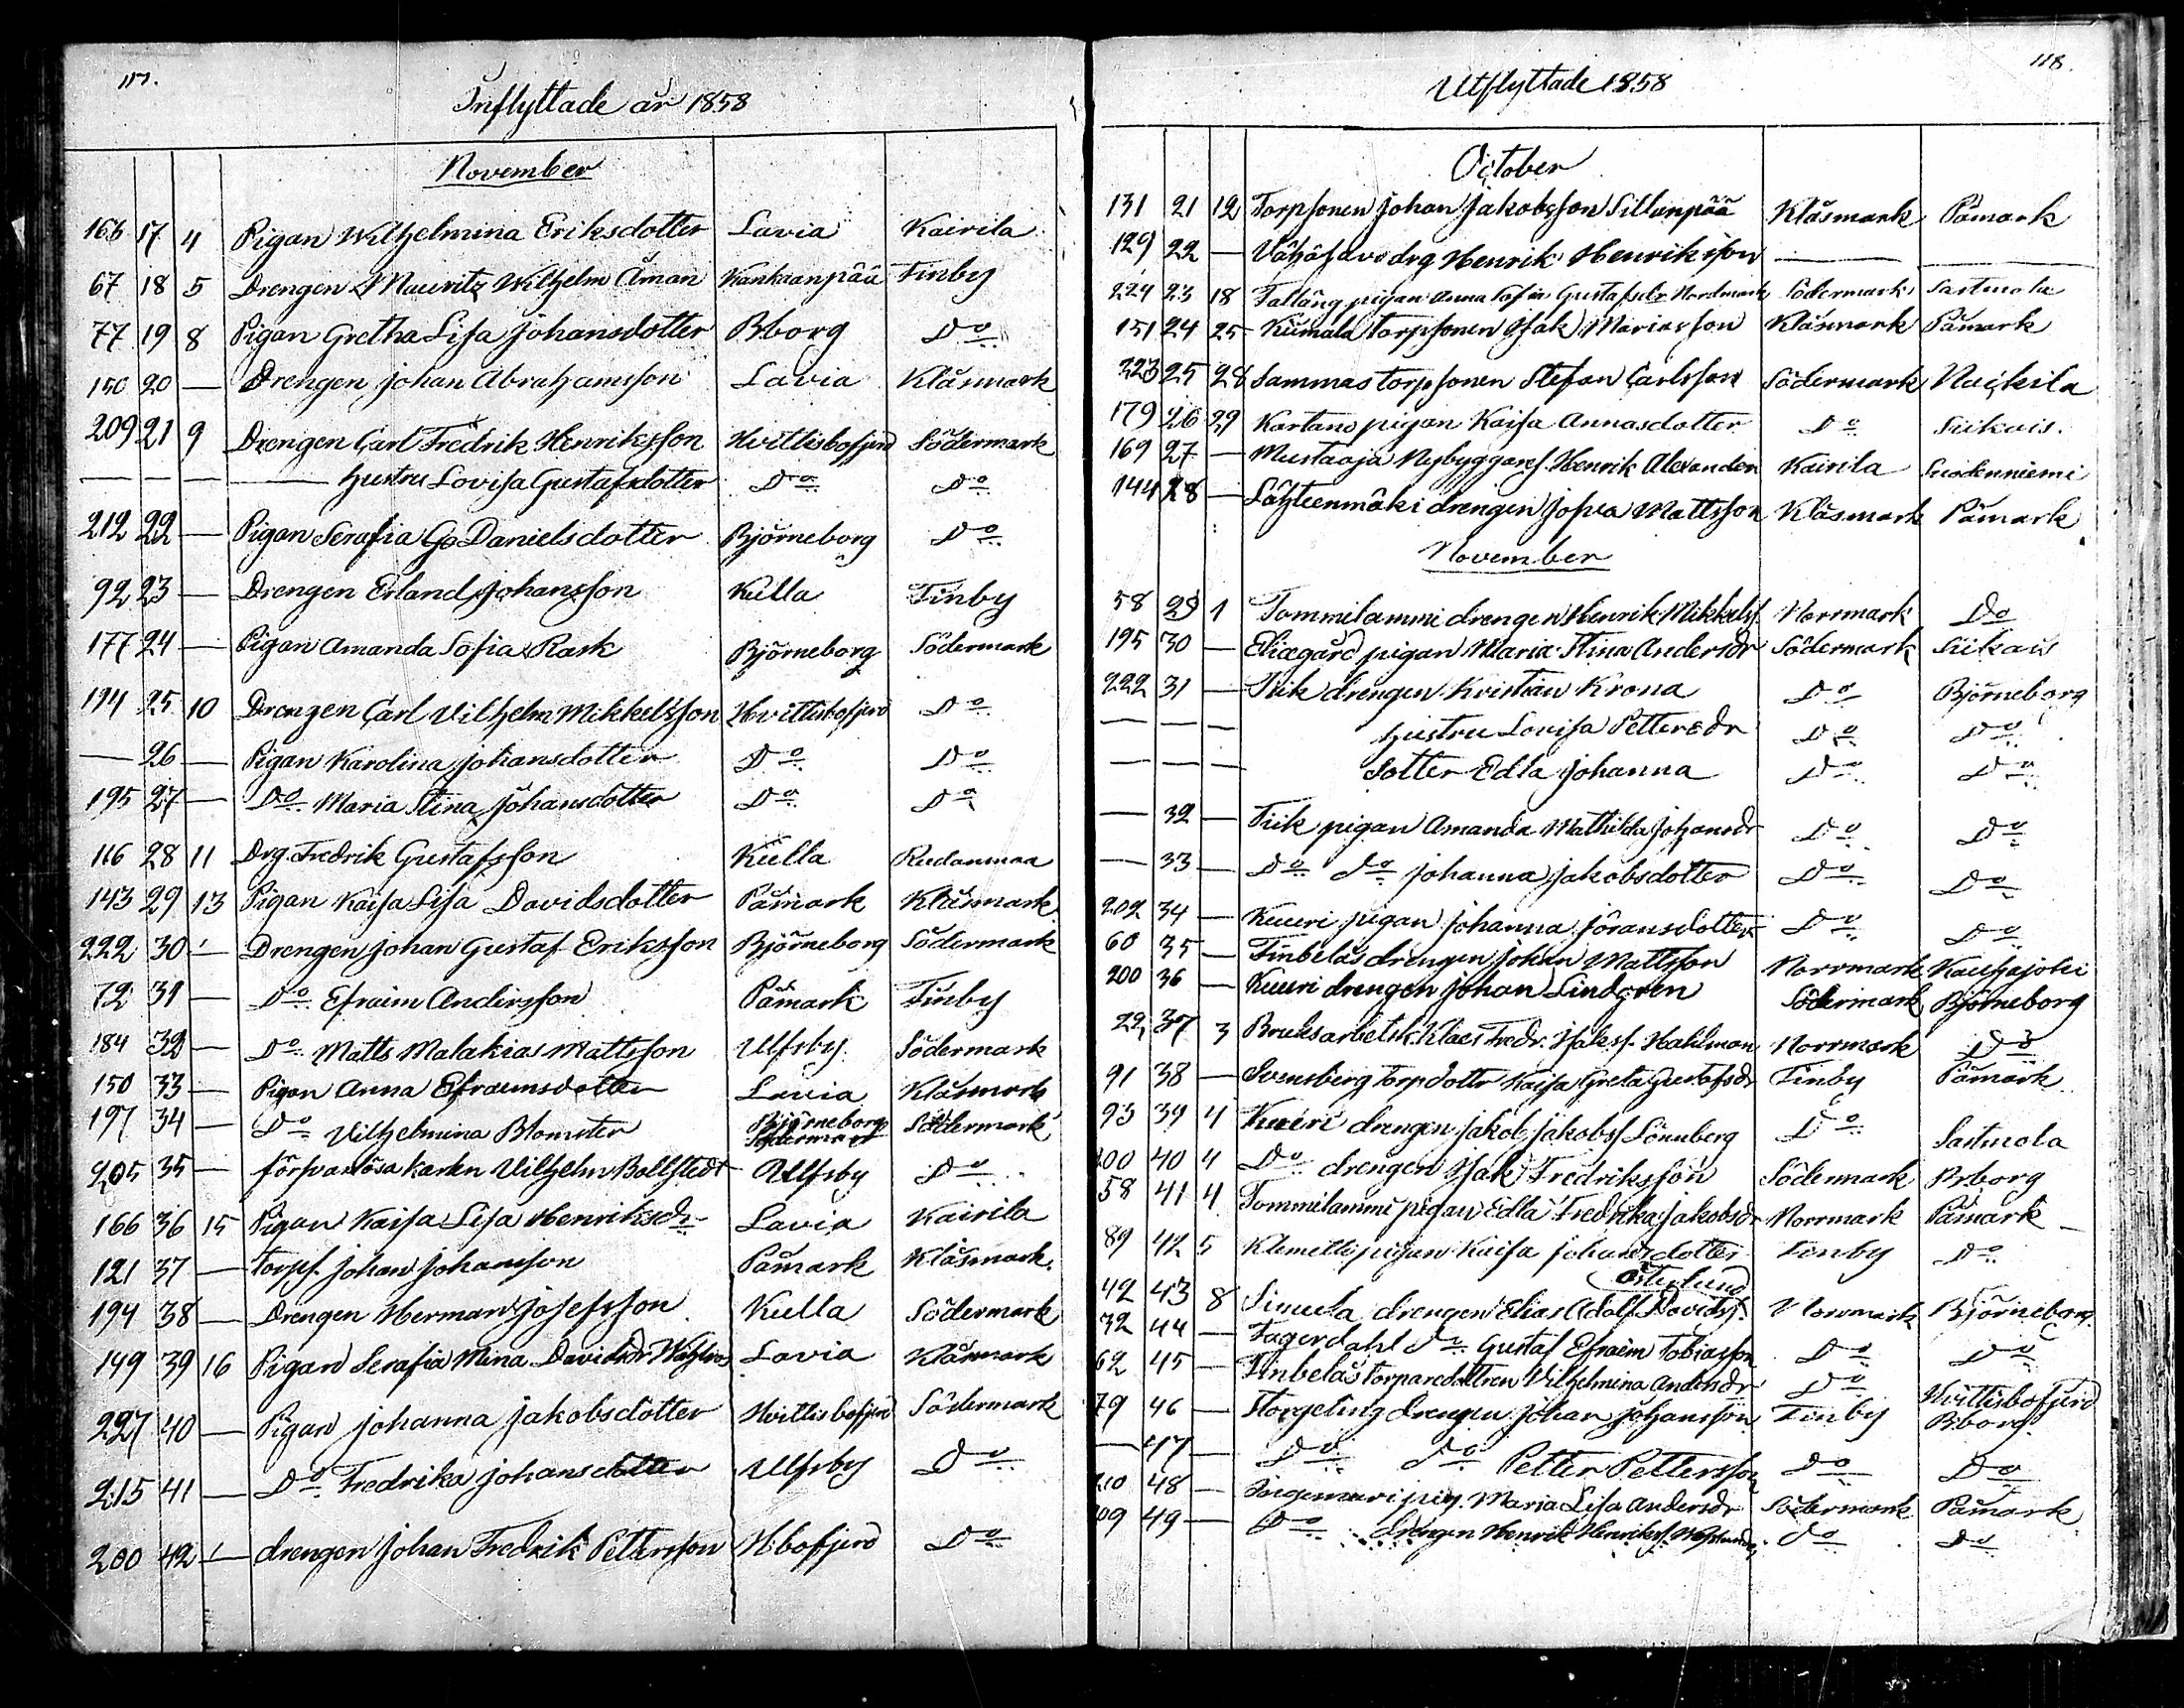 117.
Inflyttade år 1858
November
166 17 4 Pigan Wilhelmina Eriksdotter Lavia Kairila
67 18 5 Drengen Mauritz Wilhelm Åman Kankaanpää Finby
77 19 8 Pigan Gretha Lisa Johansdotter Bborg Do
150 20 — Drengen Johan Abrahamsson Lavia Klåsmark
209 21 9 Drengen Carl Fredrik Henriksson Hvittisbofjerd Södermark
— — — hustru Lovisa Gustafsdotter Do Do
212 22 — Pigan Serafia Danielsdotter Björneborg Do
92 23 — Drengen Erland Johansson Kulla Finby
177 24 — Pigan Amanda Sofia Rask Björneborg Södermark
194 25 10 Drengen Carl Vilhelm Mikkelsson Hvittisbofjerd Do
— 26 — Pigan Karolina Johansdotter Do Do
195 27 — Do Maria Stina Johansdotter Do Do
116 28 11 Drg. Fredrik Gustafsson Kulla Rudanmaa
143 29 13 Pigan Kaisa Lisa Davidsdotter Påmark Klåsmark
222 30 — Drengen Johan Gustaf Eriksson Björneborg Södermark
72 31 — Do Efraim Andersson Påmark Finby
184 32 — Do Matts Malakias Mattsson Ulfsby Södermark
150 33 — Pigan Anna Efraimsdotter Lavia Klåsmark
197 34 — Do Vilhelmina Blomster Björneborg Södermark
Södermark
205 35 — försvarlösa karlen Vilhelm Bollstedt Ulfsby Do
166 36 15 Pigan Kaisa Lisa Henriksdr Lavia Kairila
121 37 — Torps. Johan Johansson Påmark Klåsmark
194 38 — Drengen Herman Josefsson Kulla Södermark
149 39 16 Pigan Serafia Mina Davidsdr Lavia Klåsmark
227 40 — Pigan Johanna Jakobsdotter Hvittisbofjerd Södermark
215 41 — Do Fredrika Johansdotter Ulfsby Do
200 42 — drengen Johan Fredrik Pettersson H:bofjerd Do
118.
Utflyttade 1858
October
131 21 12 Torpsonen Johan Jakobsson Sillanpää Klåsmark Påmark
129 22 — drg Henrik Henriksson — —
224 23 18 Talläng pigan Anna Sofia Gustafsdr Nordmark Södermark Sastmola
151 24 25 Kiimala torpsonen Isak Mariasson Klåsmark Påmark
223 25 28 Sammas torpsonen Stefan Carlsson Södermark Nackila
179 26 29 Kartano pigan Kaisa Annasdotter Do Siikais.
169 27 — Mustaoja Nybyggares. Henrik Alexander Kairila Suodenniemi
144 28 — Lähteenmäki drengen Josua Mattsson Klåsmark Påmark
November
58 29 1 Tommilammi drengen Henrik Mikkelss. Norrmark Do
195 30 — Eliægård pigan Maria Stina Andersdr Södermark Siikais
222 31 — Trik drengen Kristian Krona Do Björneborg
— — — hustru Lovisa Pettersdr Do Do
— — — dotter Edla Johanna Do Do
— 32 — Trik pigan Amanda Mathilda Johansdr Do Do
— 33 — Do Do Johanna Jakobsdotter Do Do
202 34 — Kuuri pigan Johanna Göransdotter Do Do
60 35 — Finbelås drengen Johan Mattsson Norrmark Kauhajoki
200 36 — Kuuri drengen Johan Lindgren Södermark Björneborg
22 37 3 Bruksarbetsk. Klaes Fredr. Isakss. Hahlman Norrmark Do
91 38 — Svensberg torpdottr Kaisa Greta Gustafsdr Finby Påmark
93 39 4 Kuuri drengen Jakob Jakobss. Lönnberg Do Sastmola
200 40 4 Do drengen Isak Fredriksson Södermark B:borg
58 41 4 Tommilammi pigan Edla Fredrika Jakobsdr Norrmark Påmark
89 42 5 Klemetti pigan Kaisa Johansdotter Finby Do
Österlund
42 43 8 Simula drengen Elias Adolf Davidss. Norrmark Björneborg
32 44 — Fagerdahl Do Gustaf Efraim Tobiasson Do Do
62 45 — Finbelås torparedottren Vilhelmina Andersdr Do Hvittisbofjerd
79 46 — Storgeling drengen Johan Johansson Finby B:borg
— 47 — Do Do Petter Pettersson Do Do
210 48 — pig. Maria Lisa Andersdr Södermark Påmark
209 49 — Do drengen Henrik Henrikss. Do Do